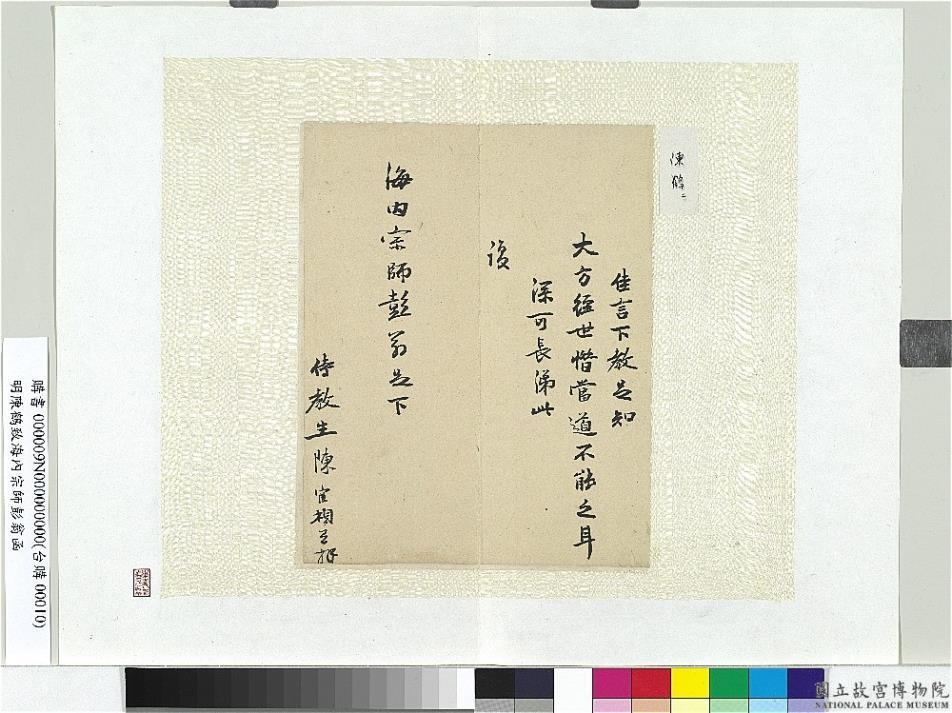 陳鶴二
佳言下教足知
大方經世惜當道不能之耳
深可長涕此
復
海内宗師彭翁足下
侍教生陳
購書 000009N000000000(台購 00010)
明陳鶴致海內宗師彭翁函
國立故宮博物院
NATIONAL PALACE MUSEUM